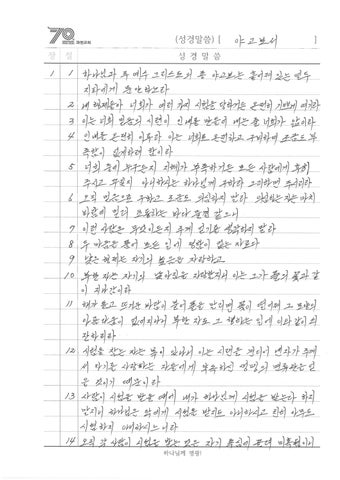 70 과천교회
(성경말씀) [ 야고보서 ]
장 절 성 경 말 씀
1 1 하나님과 주 예수 그리스도의 종 야고보는 흩어져 있는 열두
지파에게 문안하노라
2 내 형제들아 너희가 여러 가지 시험을 당하거든 온전히 기쁘게 여기라
3 이는 너희 믿음의 시련이 인내를 만들어 내는 줄 너희가 앎이라
4 인내를 온전히 이루라 이는 너희로 온전하고 구비하여 조금도 부
족함이 없게하려 함이라
5 너희 중에 누구든지 지혜가 부족하거든 모든 사람에게 후히
주시고 꾸짖지 아니하시는 하나님께 구하라 그리하면 주시리라
6 오직 믿음으로 구하고 조금도 의심하지 말라 의심하는 자는 마치
바람에 밀려 요동하는 바다 물결 같으니
7 이런 사람은 무엇이든지 주께 얻기를 생각하지 말라
8 두 마음을 품어 모든 일에 정함이 없는 자로다
9 낮은 형제는 자기의 높음을 자랑하고
10 부한 자는 자기의 낮아짐을 자랑할지니 이는 그가 풀의 꽃과 같
이 지나감이라
11 해가 돋고 뜨거운 바람이 불어 풀을 말리면 꽃이 떨어져 그 모양의
아름다움이 없어지나니 부한 자도 그 행하는 일에 이와 같이 쇠
잔하리라
12 시험을 참는 자는 복이 있나니 이는 시련을 견디어 낸 자가 주께
서 자기를 사랑하는 자들에게 약속하신 생명의 면류관을 얻
을 것이기 때문이라
13 사람이 시험을 받을 때에 내가 하나님께 시험을 받는다 하지
말지니 하나님은 악에게 시험을 받지도 아니하시고 친히 아무도
시험하지 아니하시느니라
14 오직 각 사람이 시험을 받는 것은 자기 욕심에 끌려 미혹됨이니
하나님께 영광!